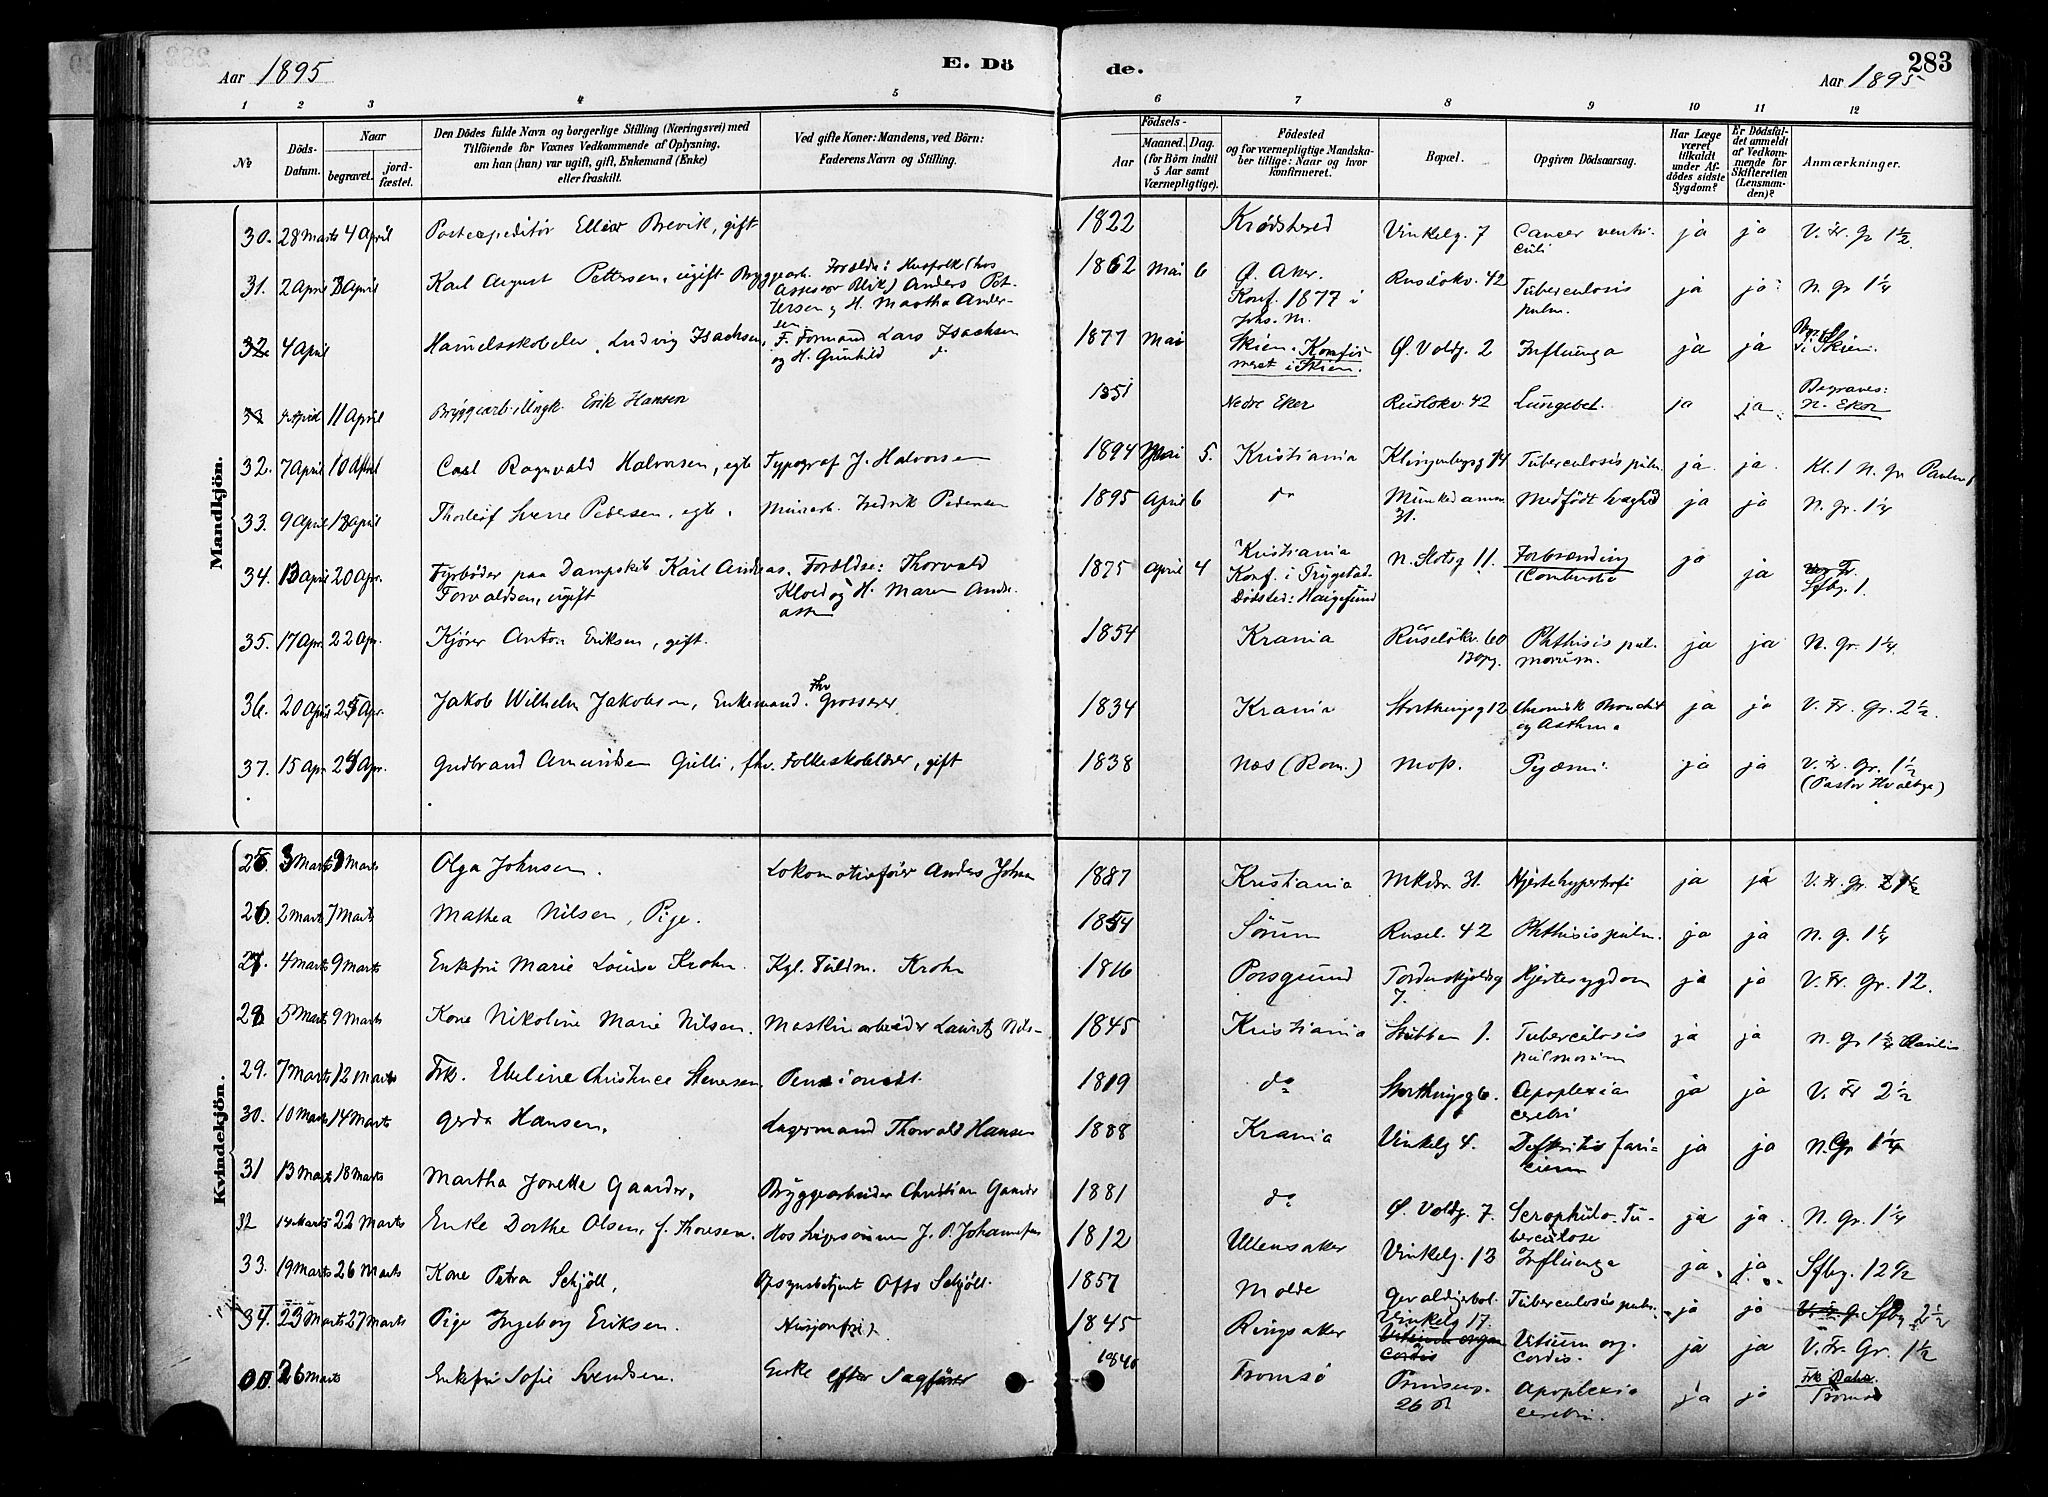 283
Aar 1895
E. Dö
de.
Aar 1895
1 2 3 4 5 6 7 8 9 10 11 12
No
Döds-Datum.
Naar
begravet.
jord-fæstet.
Den Dödes fulde Navn og borgerlige Stilling (Næringsvei) med
Tilföiende for Voxnes Vedkommende af Oplysning,
om han (hun) var ugift, gift, Enkemand (Enke)
eller fraskilt.
Ved gifte Koner: Mandens, ved Börn:
Faderens Navn og Stilling.
Födsels-
Aar
Maaned. Dag.
(for Börn indtil
5 Aar samt
Værnepligtige).
Födested
og for værnepligtige Mandska-
ber tillige: Naar og hvor
konfirmeret.
Bopæl.
Opgiven Dödsaarsag.
Har Læge
været
tilkaldt
under Af-
dödes sidste
Sygdom?
Er Dödsfal-
det anmeldt
af Vedkom-
mende for
Skifteretten
(Lensman-
den)?
Anmærkninger.
Mandkjön.
30. 28 Marts 4 April Postexpeditör Brevik, gift 1822 Krødshered Vinkelg. 7 Cancer ventri-
culi ja ja V. Fr. Gr 1 1/2.
31. 2 April 8 April Karl August Pettersen, ugift Bryggearb. Forældre: Husfolk (hos
Assessor Blik) Anders Pet-
tersen og H. Martha Ander-
sen 1862 Mai 6 Ø. Aker.
Konf. 1877 i
Johs. M. Ruselökv. 42 Tuberculosis
pulm. ja ja N. gr 1 1/4
32. 4 April Ludvig Isachsen, F. Formand Lars Isachsen
og H. Gunhild do 1877 Mai Skien. Konfir-
meret i Skien. Ø. Voldg. 2 Influenza ja ja i Skien.
33 4 April 11 April Bryggearb. Ungk. Erik Hansen 1851 Nedre Eker Ruslökv. 42 Lungebet. ja ja Begraves:
N. Eker
32. 7 April 10 April Carl Ragnvald Halvorsen, egte Typograf J. Halvorsen 1894 Mai 5. Kristiania Klingenbergg 14 Tuberculosis pulm. ja ja Kl. 1 N. gr
33. 9 April 13 april Thorleif Sverre Pedersen, egte. Murarb. Fredrik Pedersen 1895 April 6 do Munkedamsv.
31. Medfödt svaghed ja ja N. gr. 1 1/4
34. 13 april 20 Apr. Fyrböder paa Dampskib Karl Andreas
Torvaldsen, ugift Forældre: Thorvald
og H. Maren 1875 April 4 Kristiania
Konf. i Trygstad.
Dödsted: Haugesund N. Slotsg 11. Forbrænding
(Combustio ja ja Fr.
Sfbg. 1.
35. 17 Apr. 22 Apr. Kjører Anton Eriksen, gift. 1854 Krania Ruselökv. 60 Phthisis pul-
monum. ja ja N. Gr. 1 1/4.
36. 20 April 25 Apr. Jakob Wilhelm Jakobsen, Enkemand. Fhv Grosserer 1834 Krania Storthingsg 12 Chronisk Bronchit
og Asthma ja ja V. Fr. Gr. 2 1/2.
37. 15 Apr 24 Apr. Gudbrand Amundsen Gulli, fhv. Folkeskolelærer, gift 1838 Næs (Rom.) Moss. Pyæmi. ja ja V. Fr. Gr. 1 1/2
(Pastor Hvalbye)
Kvindekjön.
25. 3 Marts 9 Marts Olga Johnsen. Lokomotivförer Anders Johnsen 1887 Kristiania Mkdv. 31. Hjertehypertrofi ja ja V. Fr. Gr. 1 1/2
26. 2 Marts 7 Marts Mathea Nilsen, Pige. 1854 Sörum Rusel. 42 Phthisis pulm. ja ja N. g. 1 1/4
27. 4 Marts 9 Marts Enkefru Marie Louise Krohn. Kgl. Fuldm. Krohn 1816 Porsgrund Tordenskjoldsg
7. Hjertesygdom ja ja V. Fr. Gr. 12.
28. 5 Marts 9 Marts Kone Nikoline Marie Nilsen. Maskinarbeider Laurits Nils- 1845 Kristiania Stubben 1. Tuberculosis
pulmonum ja ja N. Gr 1 1/4
29. 7 Marts 12 Marts Frk. Eveline Christence Stenersen. Pensionist. 1819 do Storthingsg 6. Apoplexia
cerebri ja ja V. Fr 2 1/2
30. 10 Marts 14 Marts Gerda Hansen. Lagermand Thorvald Hansen 1888 Krania Vinkelg 4. Difteritis fau-
cium ja ja N. Gr 1 1/4
31 13 Marts 18 Marts Martha Jonette Gaarder. Bryggearbeider Christian Gaarder 1881 do Ø. Voldg. 7. Scrophulo-Tu-
berculose ja ja N. Gr. 1 1/4
32 14 Marts 22 Marts Enke Dorthe Olsen, f. Thoresen. Hos Svigersönnen J. P. Johannesen 1812 Ullensaker Vinkelg. 13 Influenza ja ja Sfbg. 12 1/2
33. 19 Marts 26 Marts Kone Petra Schjöll, Opsynsbetjent Otto Schjöll. 1857 Molde Tuberculosis pulm. ja ja Sfbg 2 1/2
34. 23 Marts 27 Marts Pige Ingeborg Eriksen. 1845 Ringsaker Vinkelg 17. Vitium org.
cordis. ja ja V. Fr. Gr. 1 1/2
26 Marts Enkefru Sofie Svendsen. Enke efter Sagförer 1840 Tromsö Prinsens.
26 Apoplexia
cerebri. ja ja Tromsö